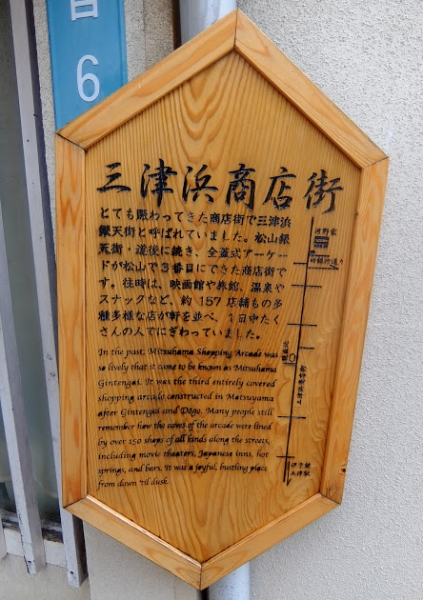 6
三津浜商店街
とても賑わってきた商店街で三津浜
銀天街と呼ばれていました。松山銀
天街・道後に続き、全蓋式アーケー
ドが松山で3番目にできた商店街で
す。往時は、映画館や旅館、温泉や
スナックなど、約157店舗もの多
種多様な店が軒を並べ、1日中たく
さんの人でにぎわっていました。
In the past, Mitsuhama Shopping Arcade was
so lively that it came to be known as Mitsuhama
Gintengai. It was the third entirely covered
shopping arcade constructed in Matsuyama
after Gintengai and Dogo. Many people still
remember how the rows of the arcade were lined
by over 150 shops of all kinds along the streets,
including movie theaters, Japanese inns, hot
springs, and bars. It was a joyful, bustling place
from dawn 'til dusk.